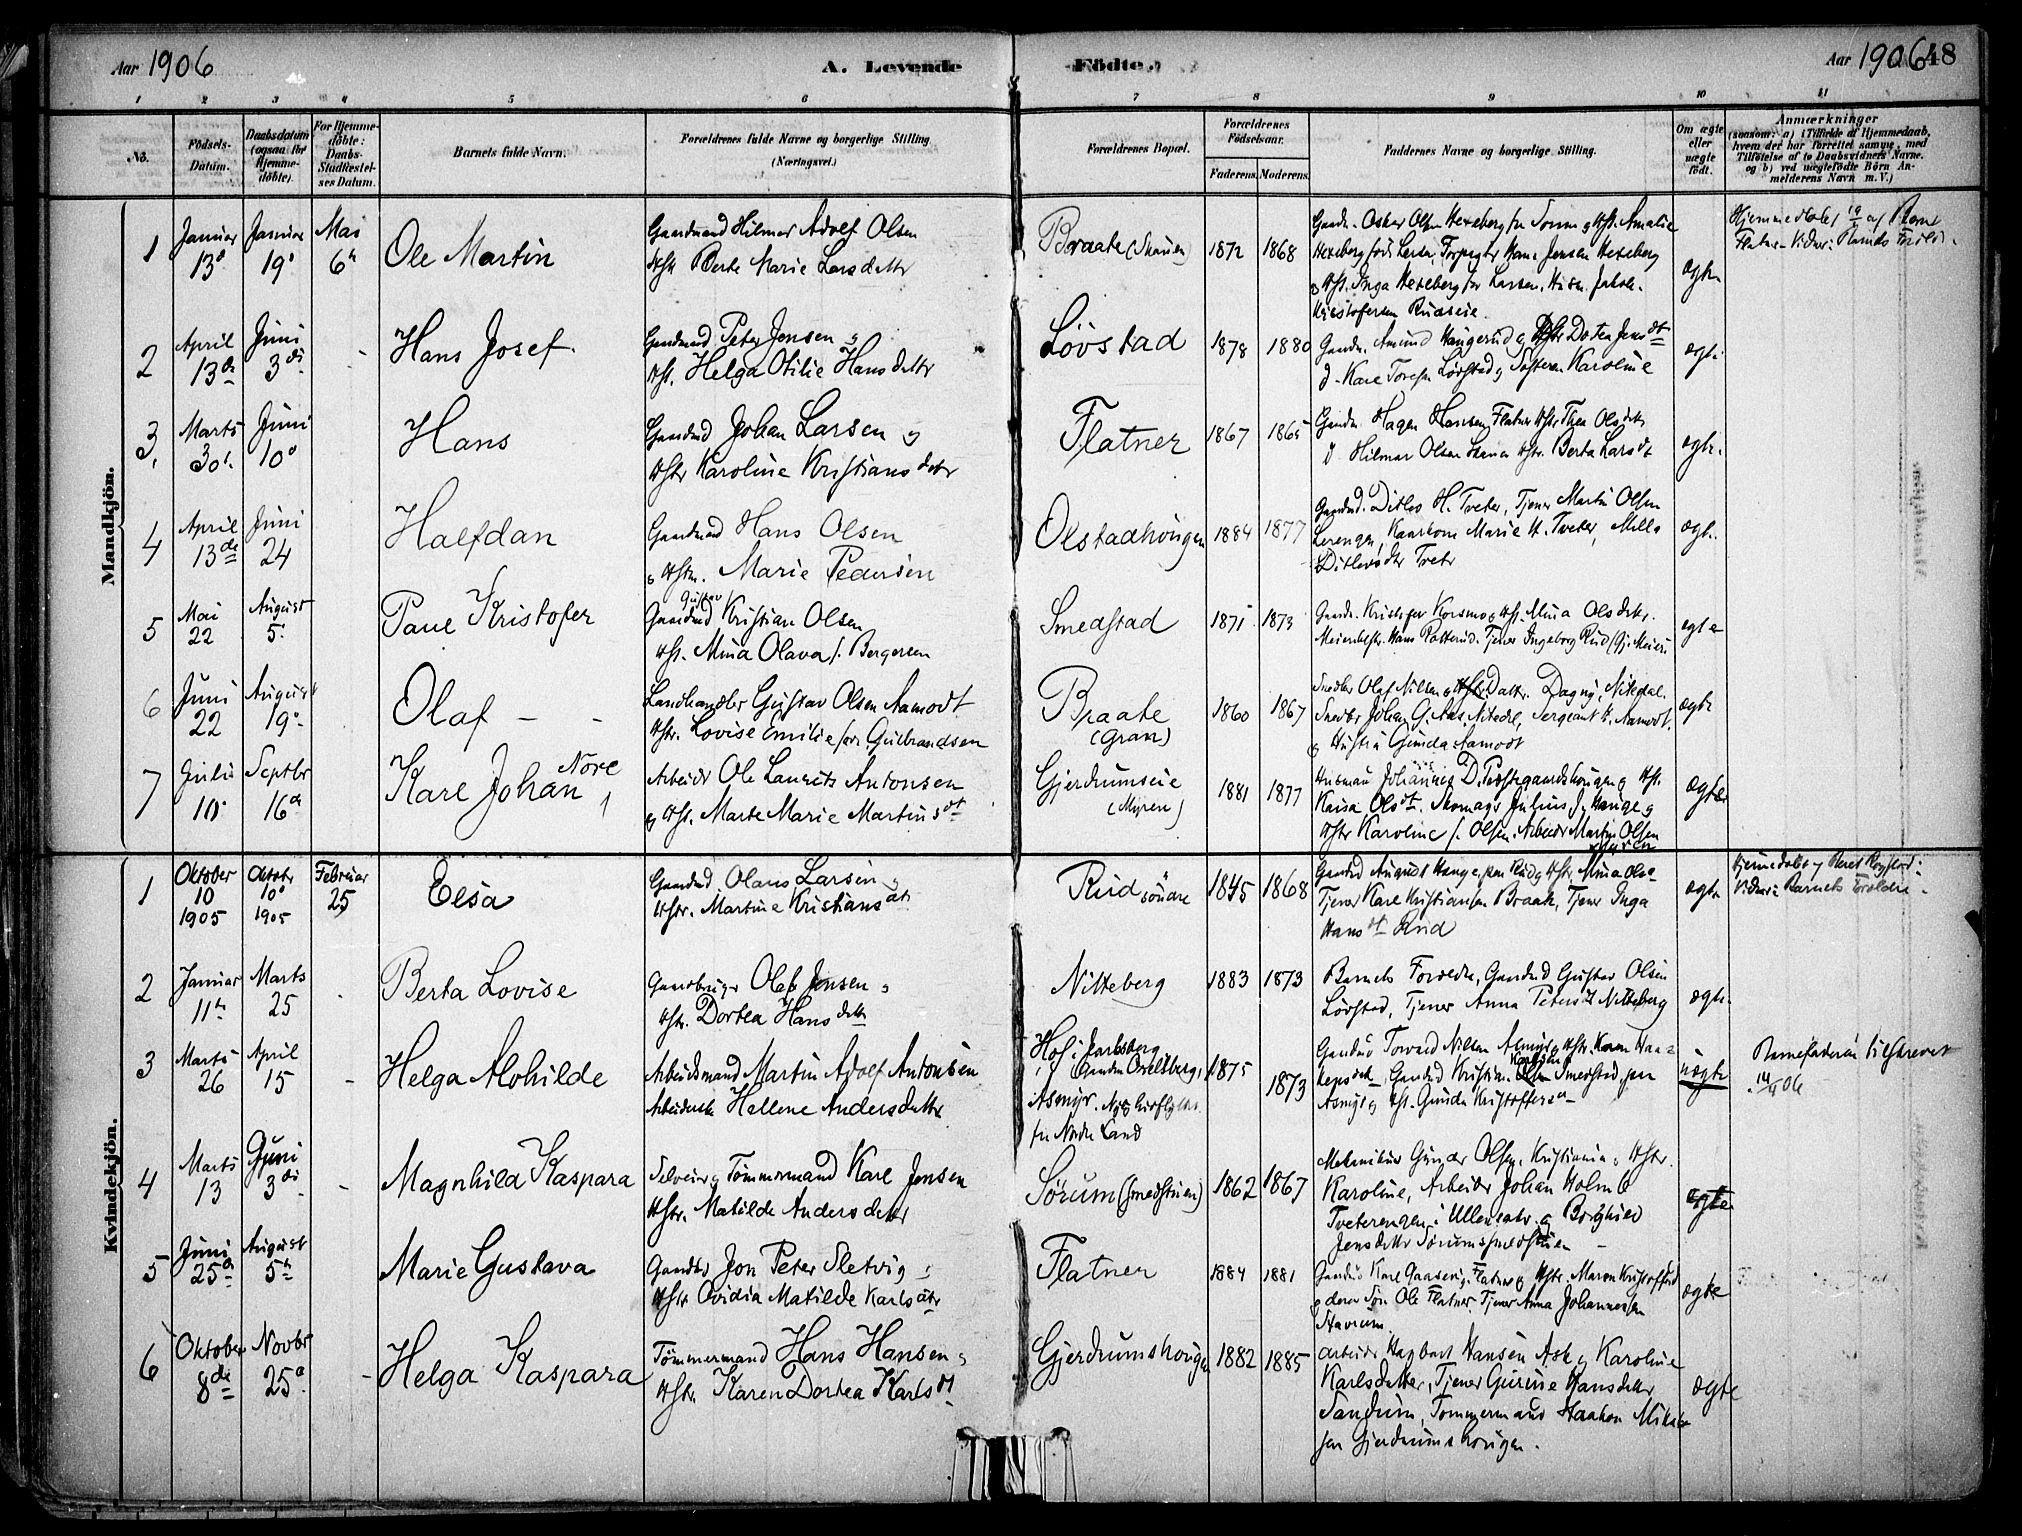 Aar 1906 A. Levende Födte. Aar 1906 48
1 2 3 4 5 6 7 8 9 10 11
No. Födsels-Datum. Daabsdatum (ogsaa for Hjemme-döbte). For Hjemme-döbte: Daabs-Stadfæstel-ses Datum. Barnets fulde Navn. Forældrenes fulde Navne og borgerlige Stilling (Næringsvei.) Forældrenes Bopæl. Forældrenes Födselsaar. Faderens. Moderens. Faddernes Navne og borgerlige Stilling. Om ægte eller uægte födt. Anmærkninger (saasom: a) i Tilfælde af Hjemmedaab, hvem der har forrettet samme, med Tilföielse af to Daabsvidners Navne, og b) ved uægtefödte Börn An-melderens Navn m. V.)
Mandkjön.
1 Januar 13d Januar 19d Mai 6te Ole Martin
Gaardmand Hilmar Adolf Olsen
Hstr Berte Marie Larsdatter
Braate (Skauen) 1872 1868
Gaardm. Oskar Olsen Hexeberg fra Sørum og Hst. Amalie
Hexeberg Jensen Hexeberg
og Hst. Inga Hexeberg Larsen,
Kristofersen Rudseie.
ægte
Hjemmedøbt 19/1 af
Flatner Vidner: Barnets Forældre.
2 April 13de Juni 3di Hans Josef.
Gaardmd Peter Jensen og
Hst. Helga Otilie Hansdatter
Lövstad 1878 1880
Gaardm. Amund Haugerud og Hstr Dotea Jensdt
Lövstad og Søsteren Karoline
ægte
3, Marts 30te Juni 10d Hans
Gaardmd Johan Larsen og
Hstr Karoline Kristiansdatter
Flatner 1867 1865
Gaardm. Hagen Hansen Flatner Hstr Thea Olsdatter
Hilmar Olsen Skauen Hstr. Berta Larsdt
ægte.
4 April 13de Juni 24 Halfdan
Gaardmand Hans Olsen
og Hstru. Marie Pedersen
Olstadhougen 1884 1877
Gaardmd. Ditlev H. Tveter, Tjener Martin Olsen
Lerengen, Marie H. Tveter, Milla
Ditlevsdtr Tveter
ægte.
5 Mai 22 August 5. Paul Kristofer
Gustav
Gaardmd Kristian Olsen
Hst. Mina Olava f. Bergersen
Smedstad 1871 1873
Gaardm. Kristofer Korsmo og Hst. Mina Olsdatter,
Meieribestr. Hans Tjener Ingeborg Rud
ægte
6 Juni 22 August 19. Olaf
Landhandler Gustav Olsen Aamodt
Hstr. Lovise Emilie født Gulbrandsen
Braate (Gran) 1860 1867
Snedker Olaf Nilsen og Datter Dagny, Nitedal.
Snedker Johan G. Aas, Nitedal, Sergeant H. Aamodt,
og Hustru Gunda Aamodt
ægte
7 Juli 10. Septbr 16de Karl Johan Nore
Arbeider Ole Laurits Antonsen
og Hst. Marte Marie Martinsdt
Gjerdrumseie (Myren) 1881 1877
Husmand Johannes D. Prestegaardshougen og Hst.
Kaisa Olsdt. Skomager Julius J. Hauge og
Hstr Karoline f. Olsen. Arbeider Martin Olsen
Myren
ægte
Kvindekjön.
1 Oktober 10 1905 Oktobr 10d 1905 Februar 25 Elsa
Gaardmd Olaus Larsen og
Hstr. Martine Kristiansdtr
Rud søndre 1845 1868
Gaardmd August Haugen Rud og Hstr. Mina Olsen
Tjener Karl Kristiansen Braate, Tjener Inga
Hansdt Rud
ægte
Hjemmedøbt af
Vidner: Barnets Forældre.
2 Januar 11te Marts 25 Berta Lovise
Gaardbruger Olaf Jensen og
Hstr. Dortea Hansdatter
Nitteberg 1883 1873
Barnets Forældre, Gaardmd Gustav Olsen
Lövstad, Tjener Anna Petersdt Nitteberg
ægte.
3 Marts 26 April 15 Helga Alvhilde
Arbeidsmand Martin Adolf Antonsen
Arbeiderske Hellene Andersdatter
Hof i Jarlsberg
Asmyr.
fra Nordre Land
1875 1873
Gaardmd Torvald Nilsen Asmyr og Hstr. Karen Haa-
kensdatter, Gaardmd Kristian Smedstad,
Asmyr og Hst. Gunda Kristoffersen
uægte
Barnefaderen tilskrevet
14/4 06
4 Marts 13 Juni 3di Magnhild Kaspara
Selveier og Tømmermand Karl Jensen
Hstr. Matilde Andersdatter
Sørum (Smedstuen) 1862 1867
Mekanikus Gunder Olsen, Kristiania og Hstr.
Karoline, Arbeider Johan Holm
Tveterengen i Ullensaker og Borghild
Jensdatter Sørumsmedstuen
ægte
5 Juni 25d August 5te Marie Gustava
Gaardbr Jon Peter Sletvig og
Hstr Ovidia Matilde Karlsdtr
Flatner 1884 1881
Gaardmd Karl Flatner og Hstr. Maren
og deres Søn Ole Flatner. Tjener Anna Johannesen
Stavrum.
ægte
6 Oktober 8de Novbr 25d Helga Kaspara
Tømmermand Hans Hansen og
Hstr. Karen Dortea Karlsdt
Gjerdrumshougen 1882 1885
Arbeider Hagbart Hansen Ask og Karoline
Karlsdatter, Tjener Gurine Hansdatter
Sandum, Tømmermand Haakon
Gjerdrumshougen.
ægte